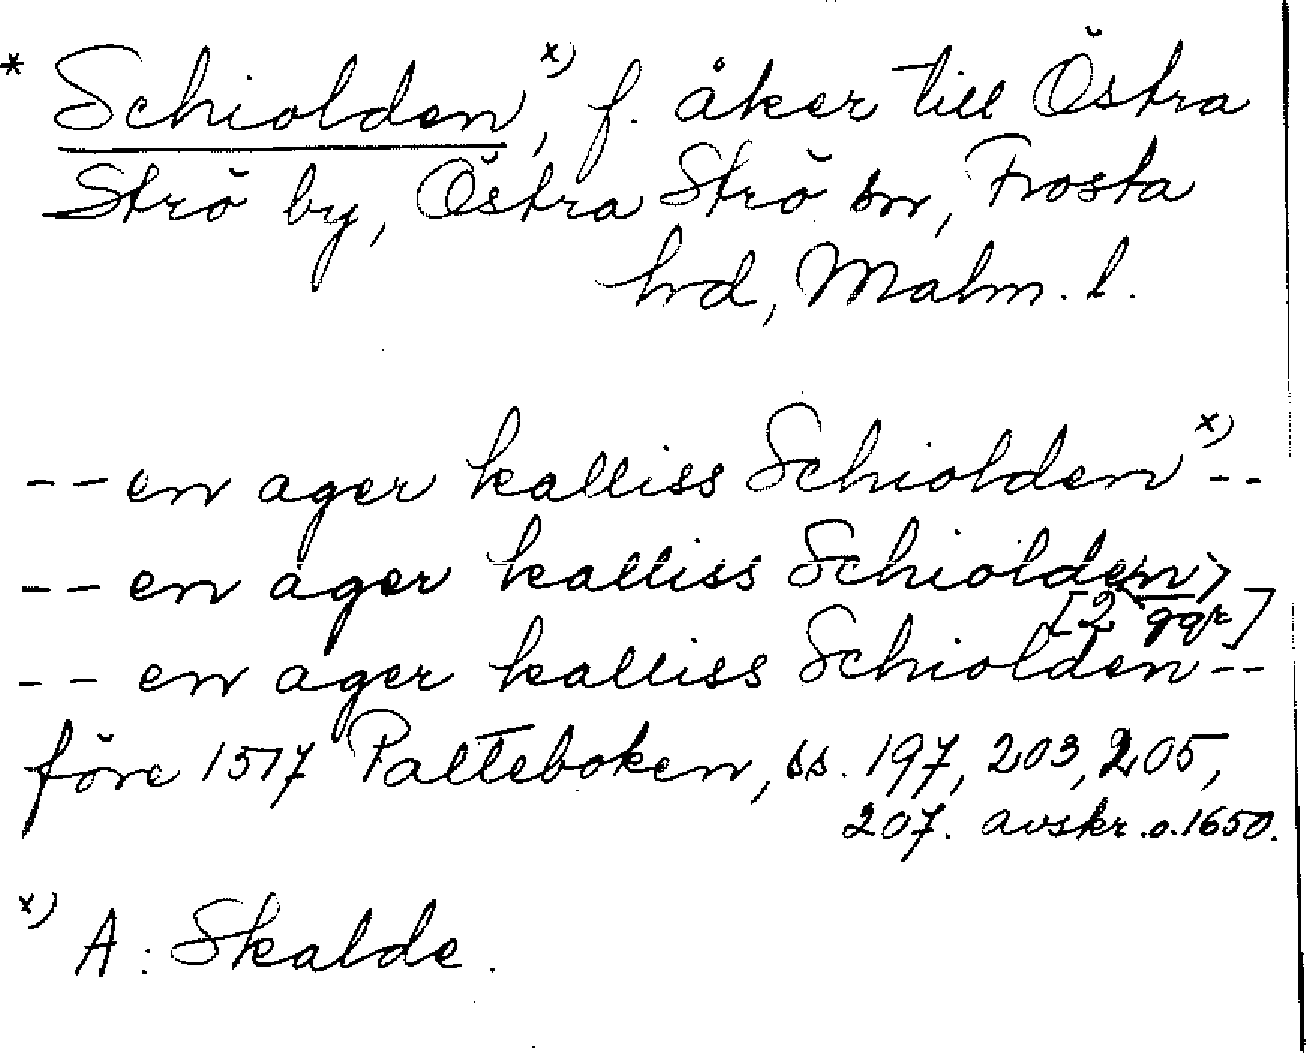 * Schiolden x), f. åker till Östra
Strö by, Östra Strö sn, Frosta
hrd, Malm. l.
-- en ager kalliss Schiolden x) --
-- en ager kalliss Schiolden >
[2 ggr]
-- en ager kalliss Schiolden --
före 1517 Palteboken, ss. 197, 203, 205,
207. avskr. o. 1650.
x) A: Skalde.